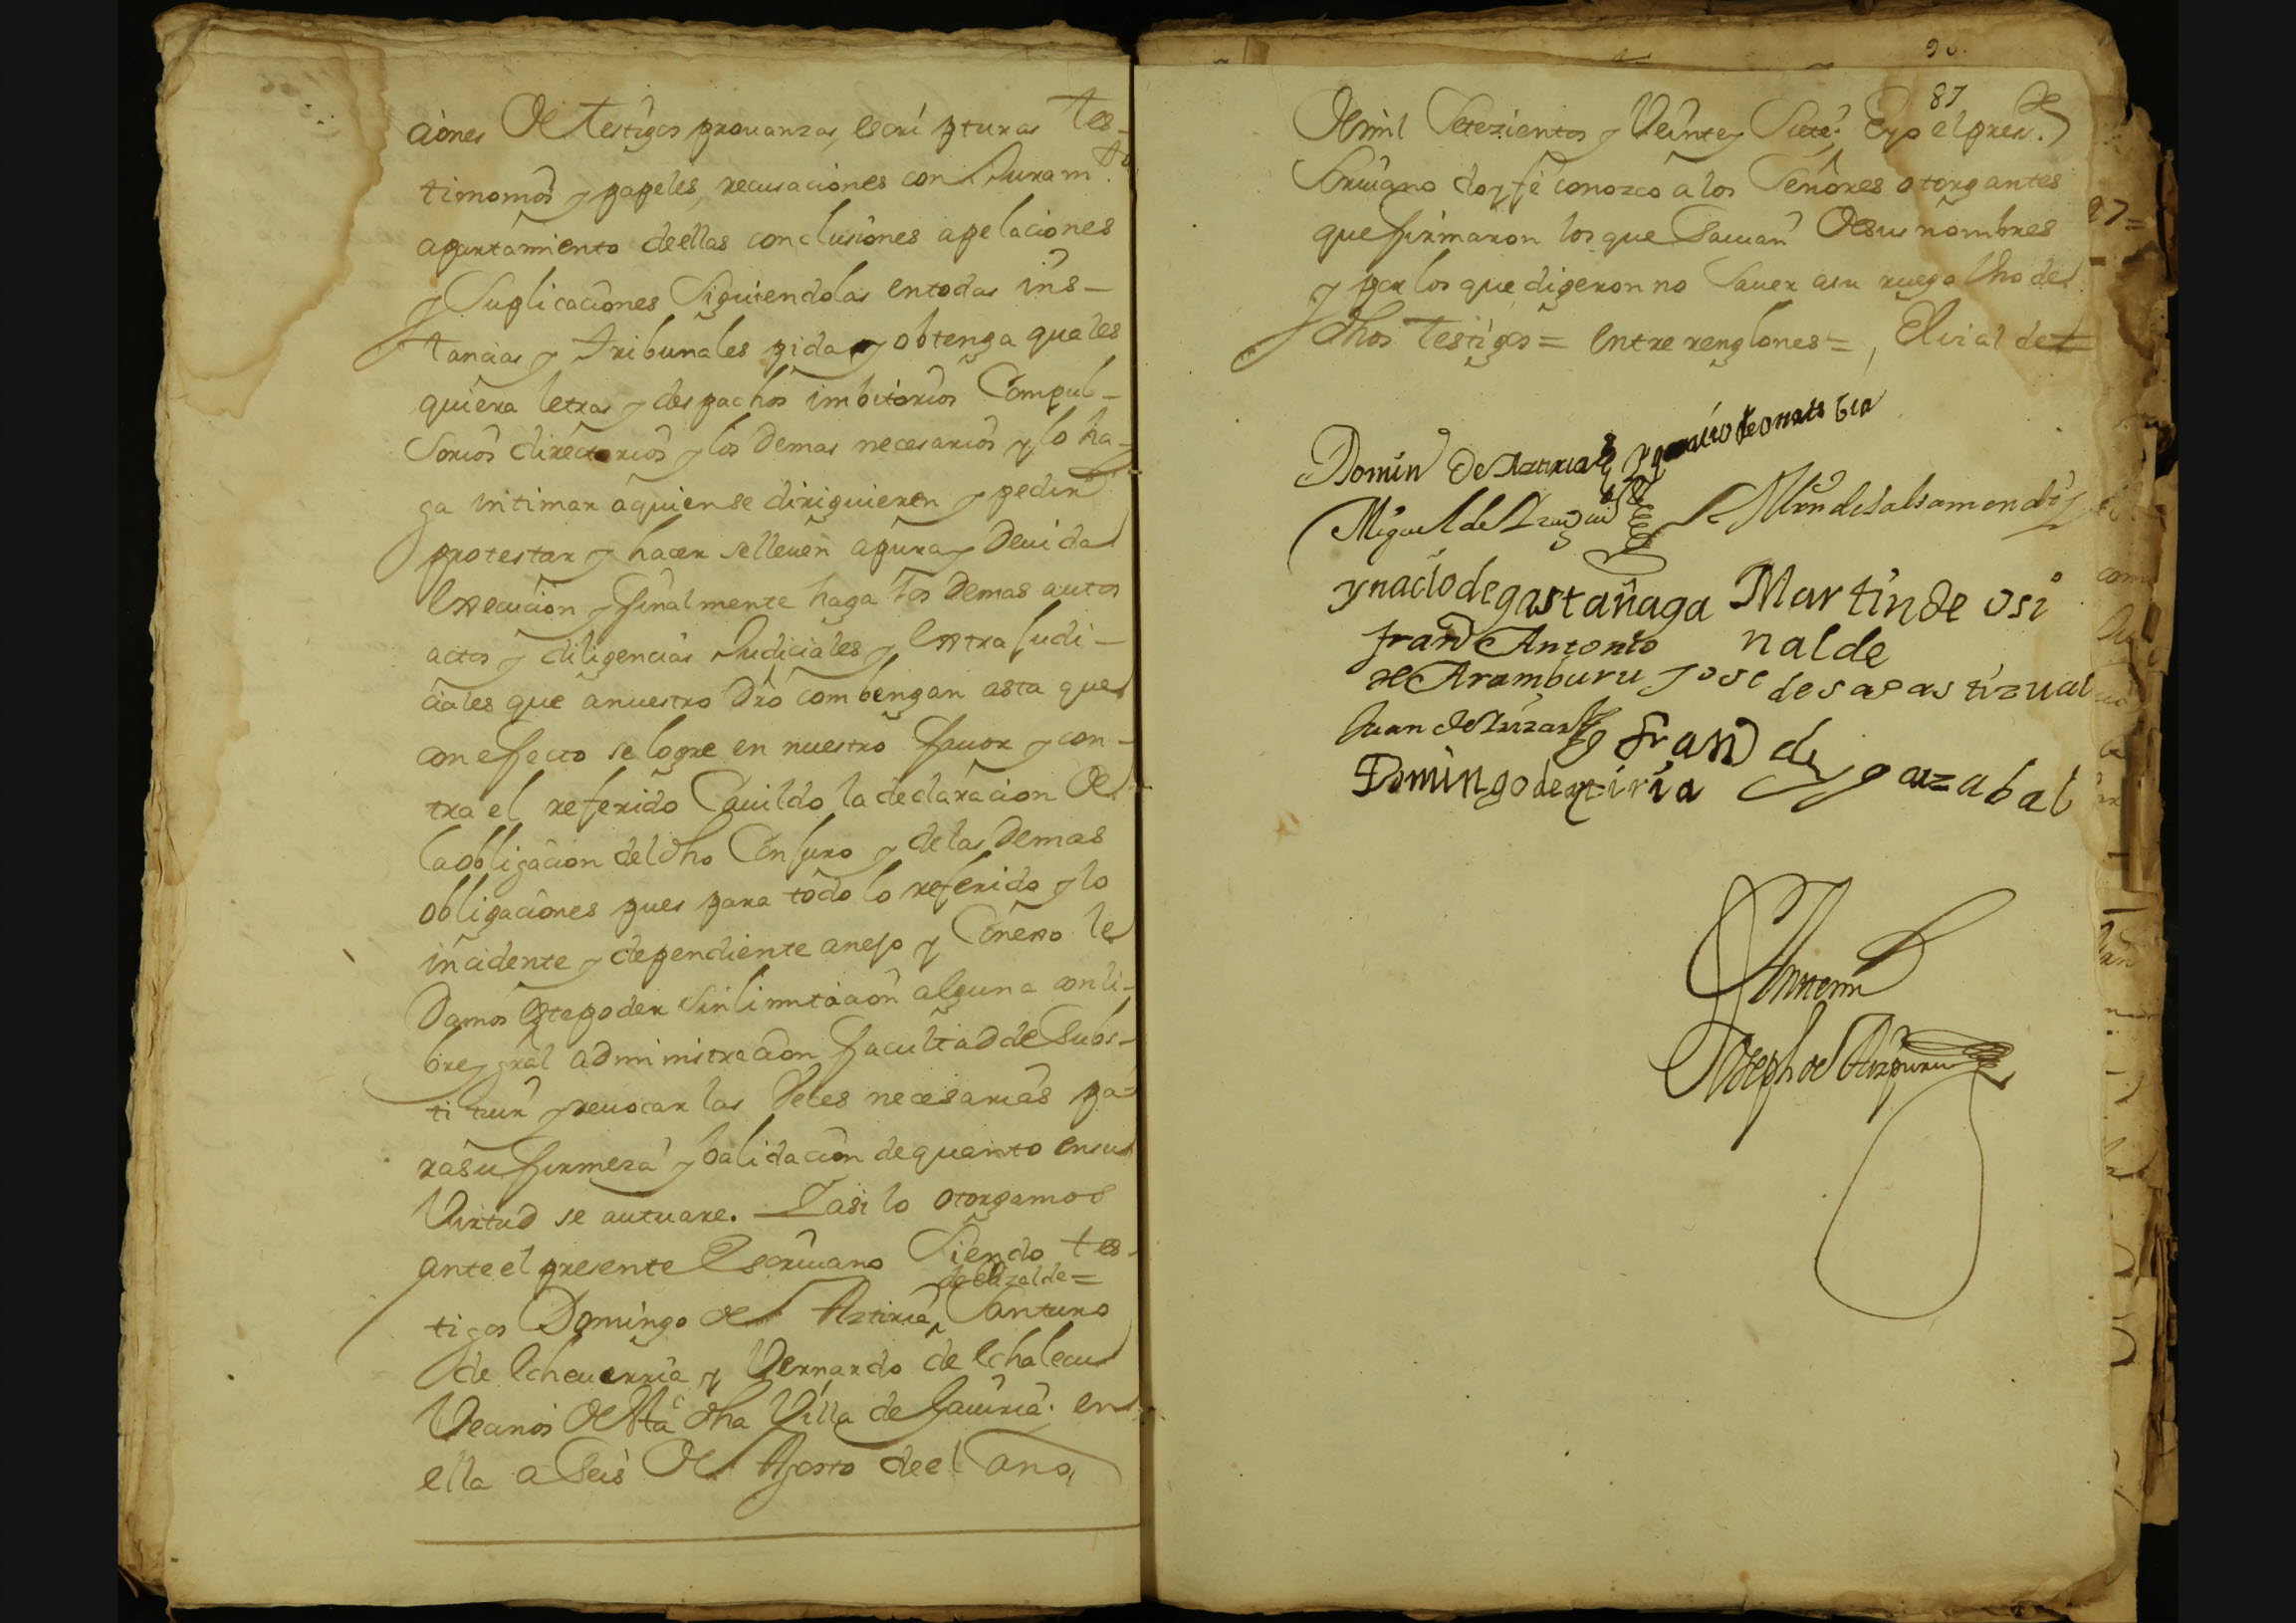 ciones De testigos prouanzas, escripturas Tes-
timonios y papeles, recusaciones con Juram.to
apartamiento deellas conclusiones apelaciones
y Suplicaciones Siguiendolas entodas ins-
tancias y tribunales pida y obtenga quales
quiera letras y despachos imbitorios Compul-
sorios directorios y los Demas necesarios y lo ha-
ga intimar aquiense diriguieren y pedir
protestar y hacer selleuen apura y Deuida
Execucion y finalmente haga los Demas autos
actos y diligencias Judiciales y Extra Judi-
ciales que anuestro dro combengan asta que
con efecto se logre en nuestro fauor y con-
tra el referido Cauildo la declaracion De
la obligacion del dho Conjuro y delas Demas
obligaciones pues para todo lo referido y lo
incidente y dependiente anejo y Conexo le
Damos Este poder sin limitacion alguna con li-
bre y gral administracion facultad de Subs-
tituir y reuocar las Veces necesarias pa-
rasu firmeza y balidacion dequanto ensu
Virtud se autuare. Y asi lo otorgamos
ante el presente Escriuano Siendo tes-
de Elizalde =
tigos Domingo de Aztiria, Santuro
de Echeuerria y Vernardo de Echalecu
Vecinos De Sta dha Villa de Gauiria. en
ella a Seis De Agosto de el año
90.
87
De mil Setezientos y Veinte y Siete. E yo el pres.te
Scriuano doy fe conozco a los Señores otorgantes
que firmaron los que Sauian De sus nombres
y por los que digeron no Sauer asu ruego Uno de
dhos Testigos = Entre renglones =, Elizalde =
27=
Domin de Aztiria Ygnacio de onatibia
Miguel de Mrn de Salsamendi
ynacio de gastañaga Martin de osi
nalde
fran.co Antonio
de Aramburu Jose de sagastizaual
Juan de Irizar fran.co de ygarzabal
Domingo de aztiria
Ante mi
Joseph de Aizpuru